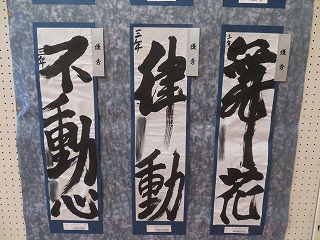 不動心
三年
優秀
律動
三年
優秀
花
優秀